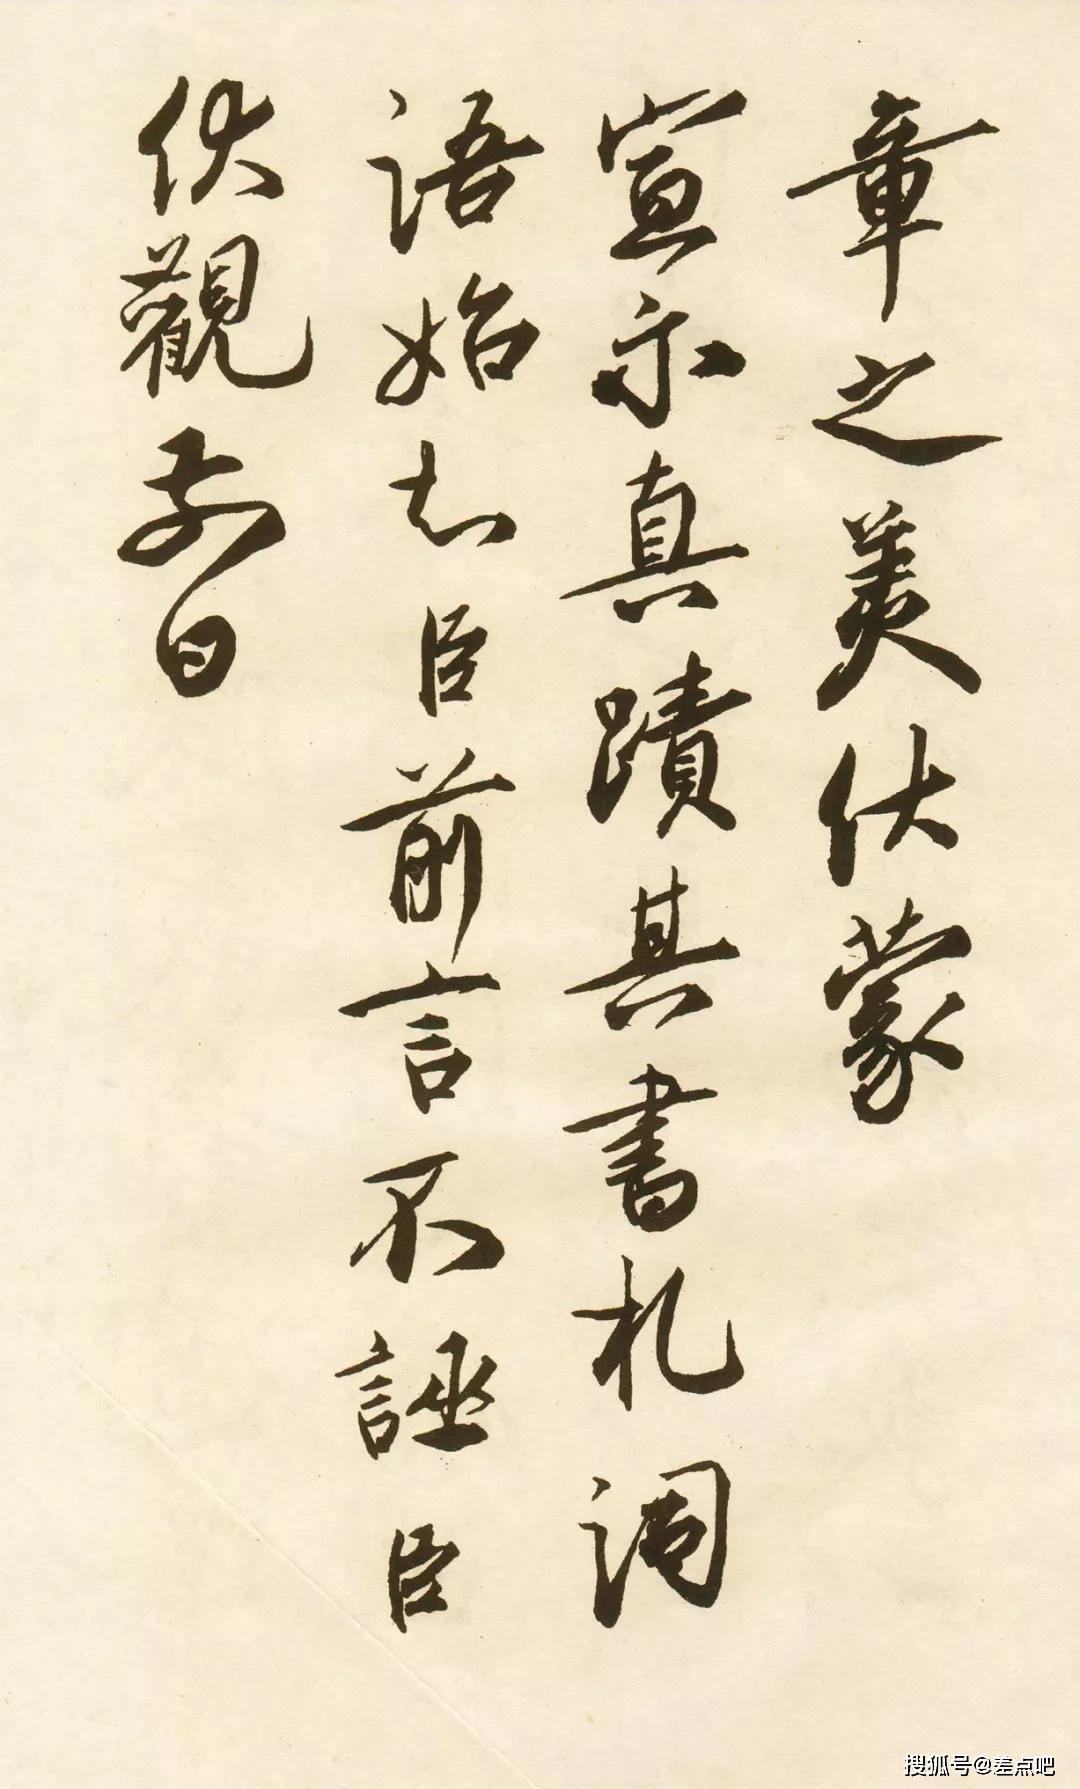 章之美伏蒙
宣示真蹟其書札詞
語始知臣前言不誣臣
伏觀日
搜狐号@差点吧